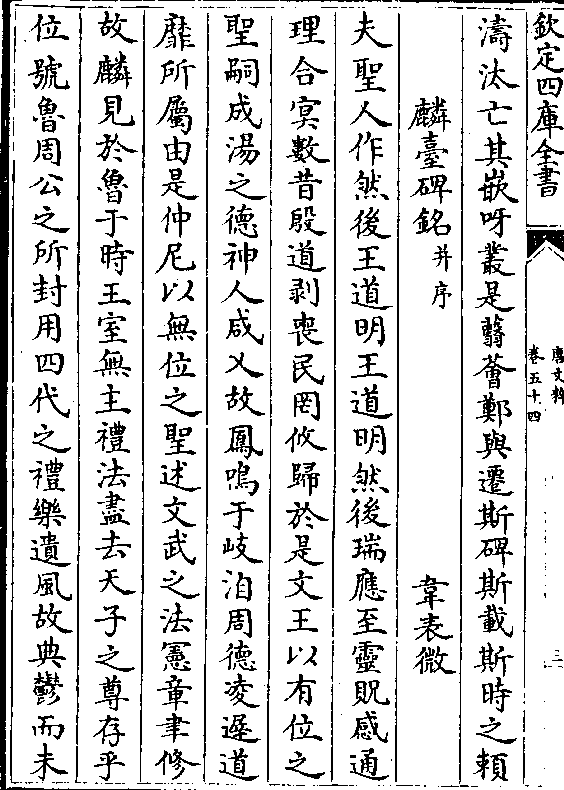 欽定四庫全書
唐文粹
卷五十四
三
濤汰亡其嵌呀叢是翳薈鄭與遷斯碑斯載斯時之頼
麟臺碑銘并序
韋表微
夫聖人作然後王道明王道明然後瑞應至靈貺感通
理合冥數昔殷道剥喪民罔攸歸於是文王以有位之
聖嗣成湯之德神人咸乂故鳳鳴于岐洎周德凌遲道
靡所屬由是仲尼以無位之聖述文武之法憲章聿修
故麟見於魯于時王室無主禮法盡去天子之尊存乎
位號魯周公之所封用四代之禮樂遺風故典鬱而未